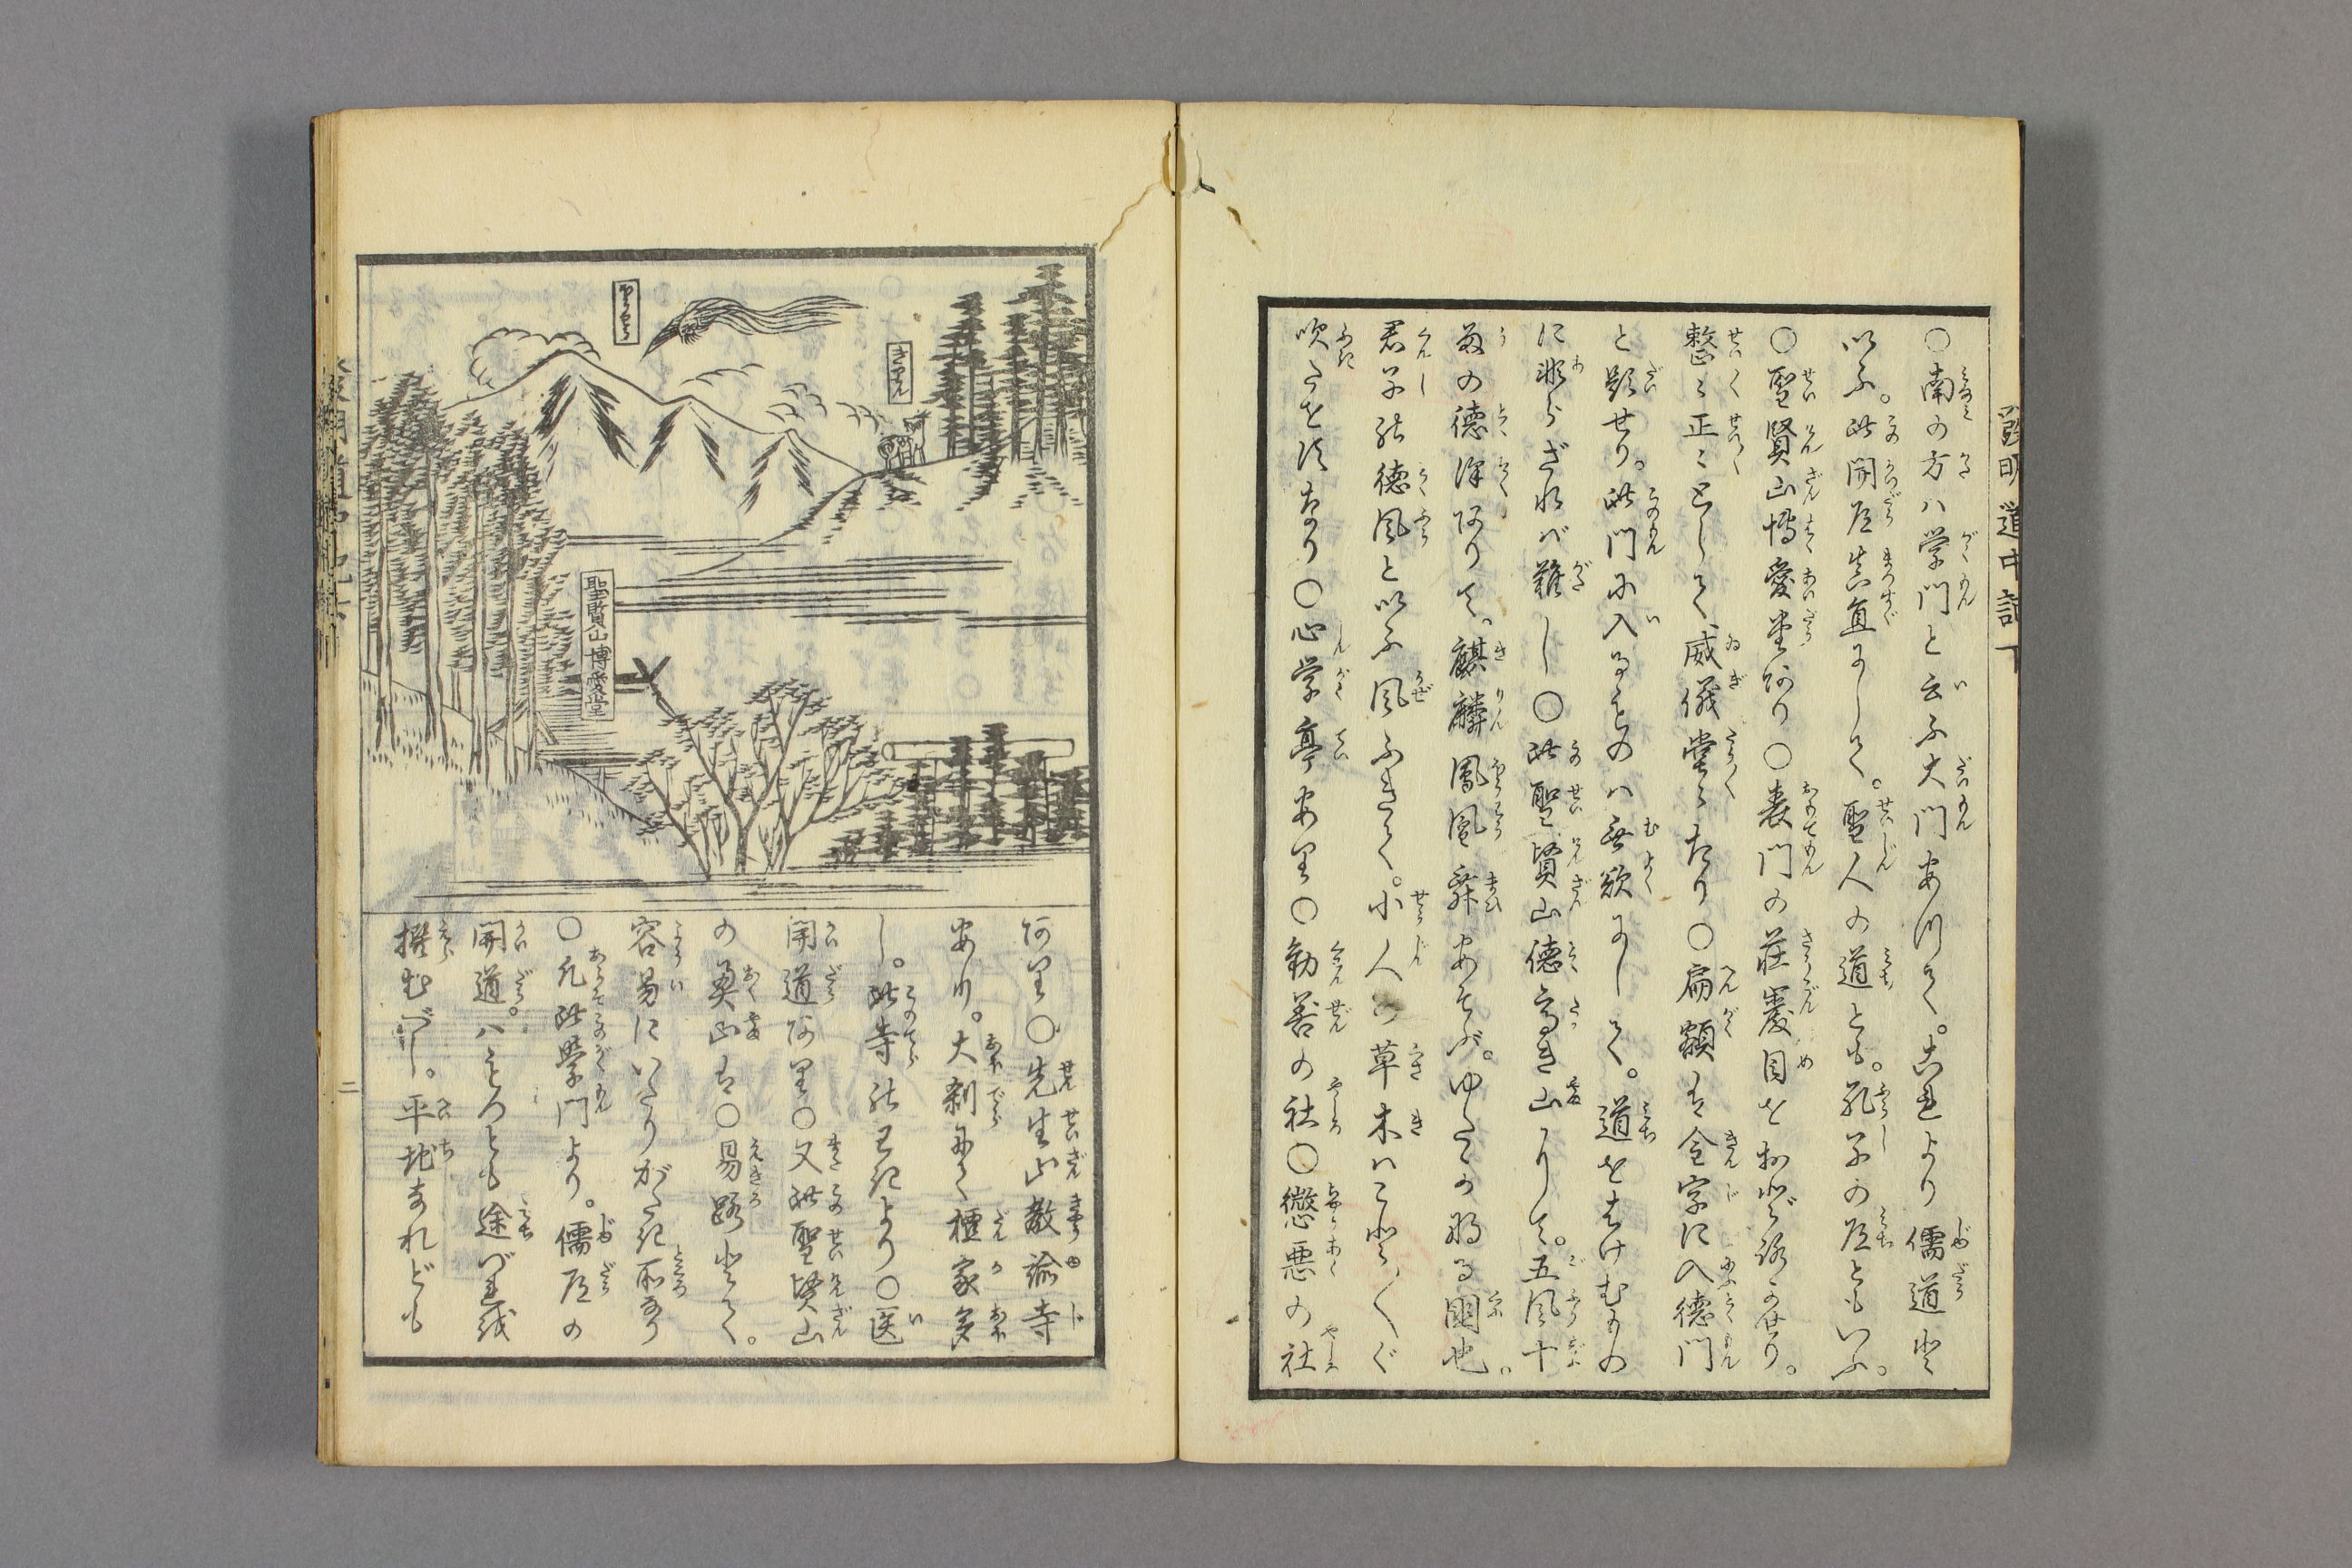 ○南の方ハ学門と云ふ大門あつて。古れより儒道と
いふ。此開道真直にして。聖人の道とも。孔子の道ともいふ。
○聖賢山博愛堂あり○表門の荘厳目をおどろかせり。
整々正々として、威儀堂々たり○扁額は金字に入徳門
と題せり。此門に入るものハ無欲にして。道をはげむもの
に非らざれバ難し○此聖賢山徳高き山なりし。五風十
雨の徳沢ありて。麒麟鳳凰舞あそぶ。ゆたかなる国也。
君子の徳風といふ風ふきて。小人の草木ハこと〴〵く
吹たをすなり○心学亭あり○勧善の社○懲悪の社
ほうわう
きりん
聖賢山博愛堂
あり○先生山教諭寺
あり。大刹にて檀家多
し。此寺のわきより○医
開道あり○又此聖賢山
の奥山は○易路とて。
容易にいたりがたき所なり
○凡此学門より。儒道の
開道。ハもつとも途づれを
撰むべし。平地なれども
二